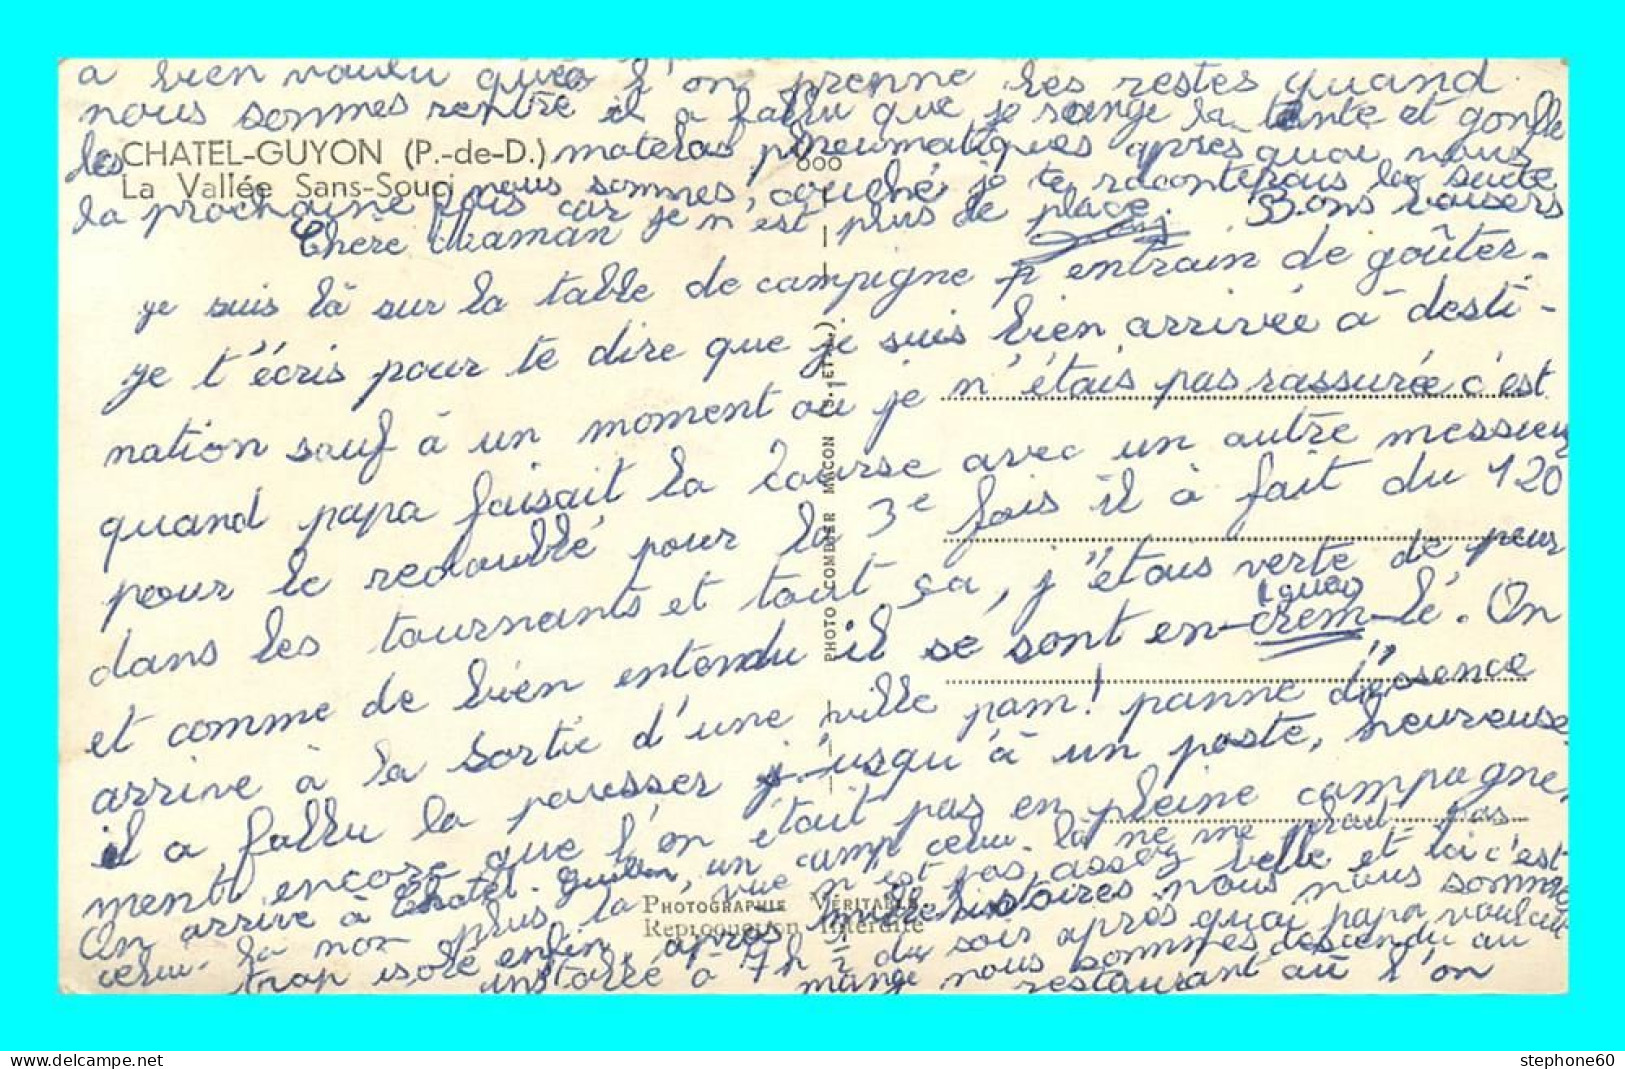 a bien voulu que l'on prenne les restes quand
nous sommes rentré il a fallu que je range la tente et gonfle
les matelas pneumatiques apres quoi nous
CHATEL-GUYON (P.-de-D.)
600
La Vallée Sans-Souci
nous sommes couché, je te raconterais la suite
la prochaine fois car je n'est plus de place. Bons baisers
Chere Maman
je suis là sur la table de campigne entrain de goûter.
je t'écris pour te dire que je suis bien arrivée à desti-
nation sauf à un moment où je n'étais pas rassurée c'est
quand papa faisait la course avec un autre messieur
pour le redoublé pour la 3e fois il à fait du 120
dans les tournants et tout ça, j'étais verte de peur
et comme de bien entendu il se sont en-crem-lé. On
(quoi)
arrive à la sortie d'une ville pam! panne d'esence
il a fallu la pousser jusqu'à un poste, heureuse
ment encore que l'on était pas en pleine campagne,
On arrive à Chatel-Guillon, un camp celui-la ne me plait pas
celui-la non plus la vue n'est pas assez belle et ici c'est
trop isolé enfin, apres mille histoires nous nous somme
installé à 7h ½ du soir après quoi papa voulait
mangé nous sommes descendu au
restaurant où l'on
PHOTO COMBIER MACON (S. ET L.)
PHOTOGRAPHIE VÉRITABLE
Reproduction Interdite
stephone60